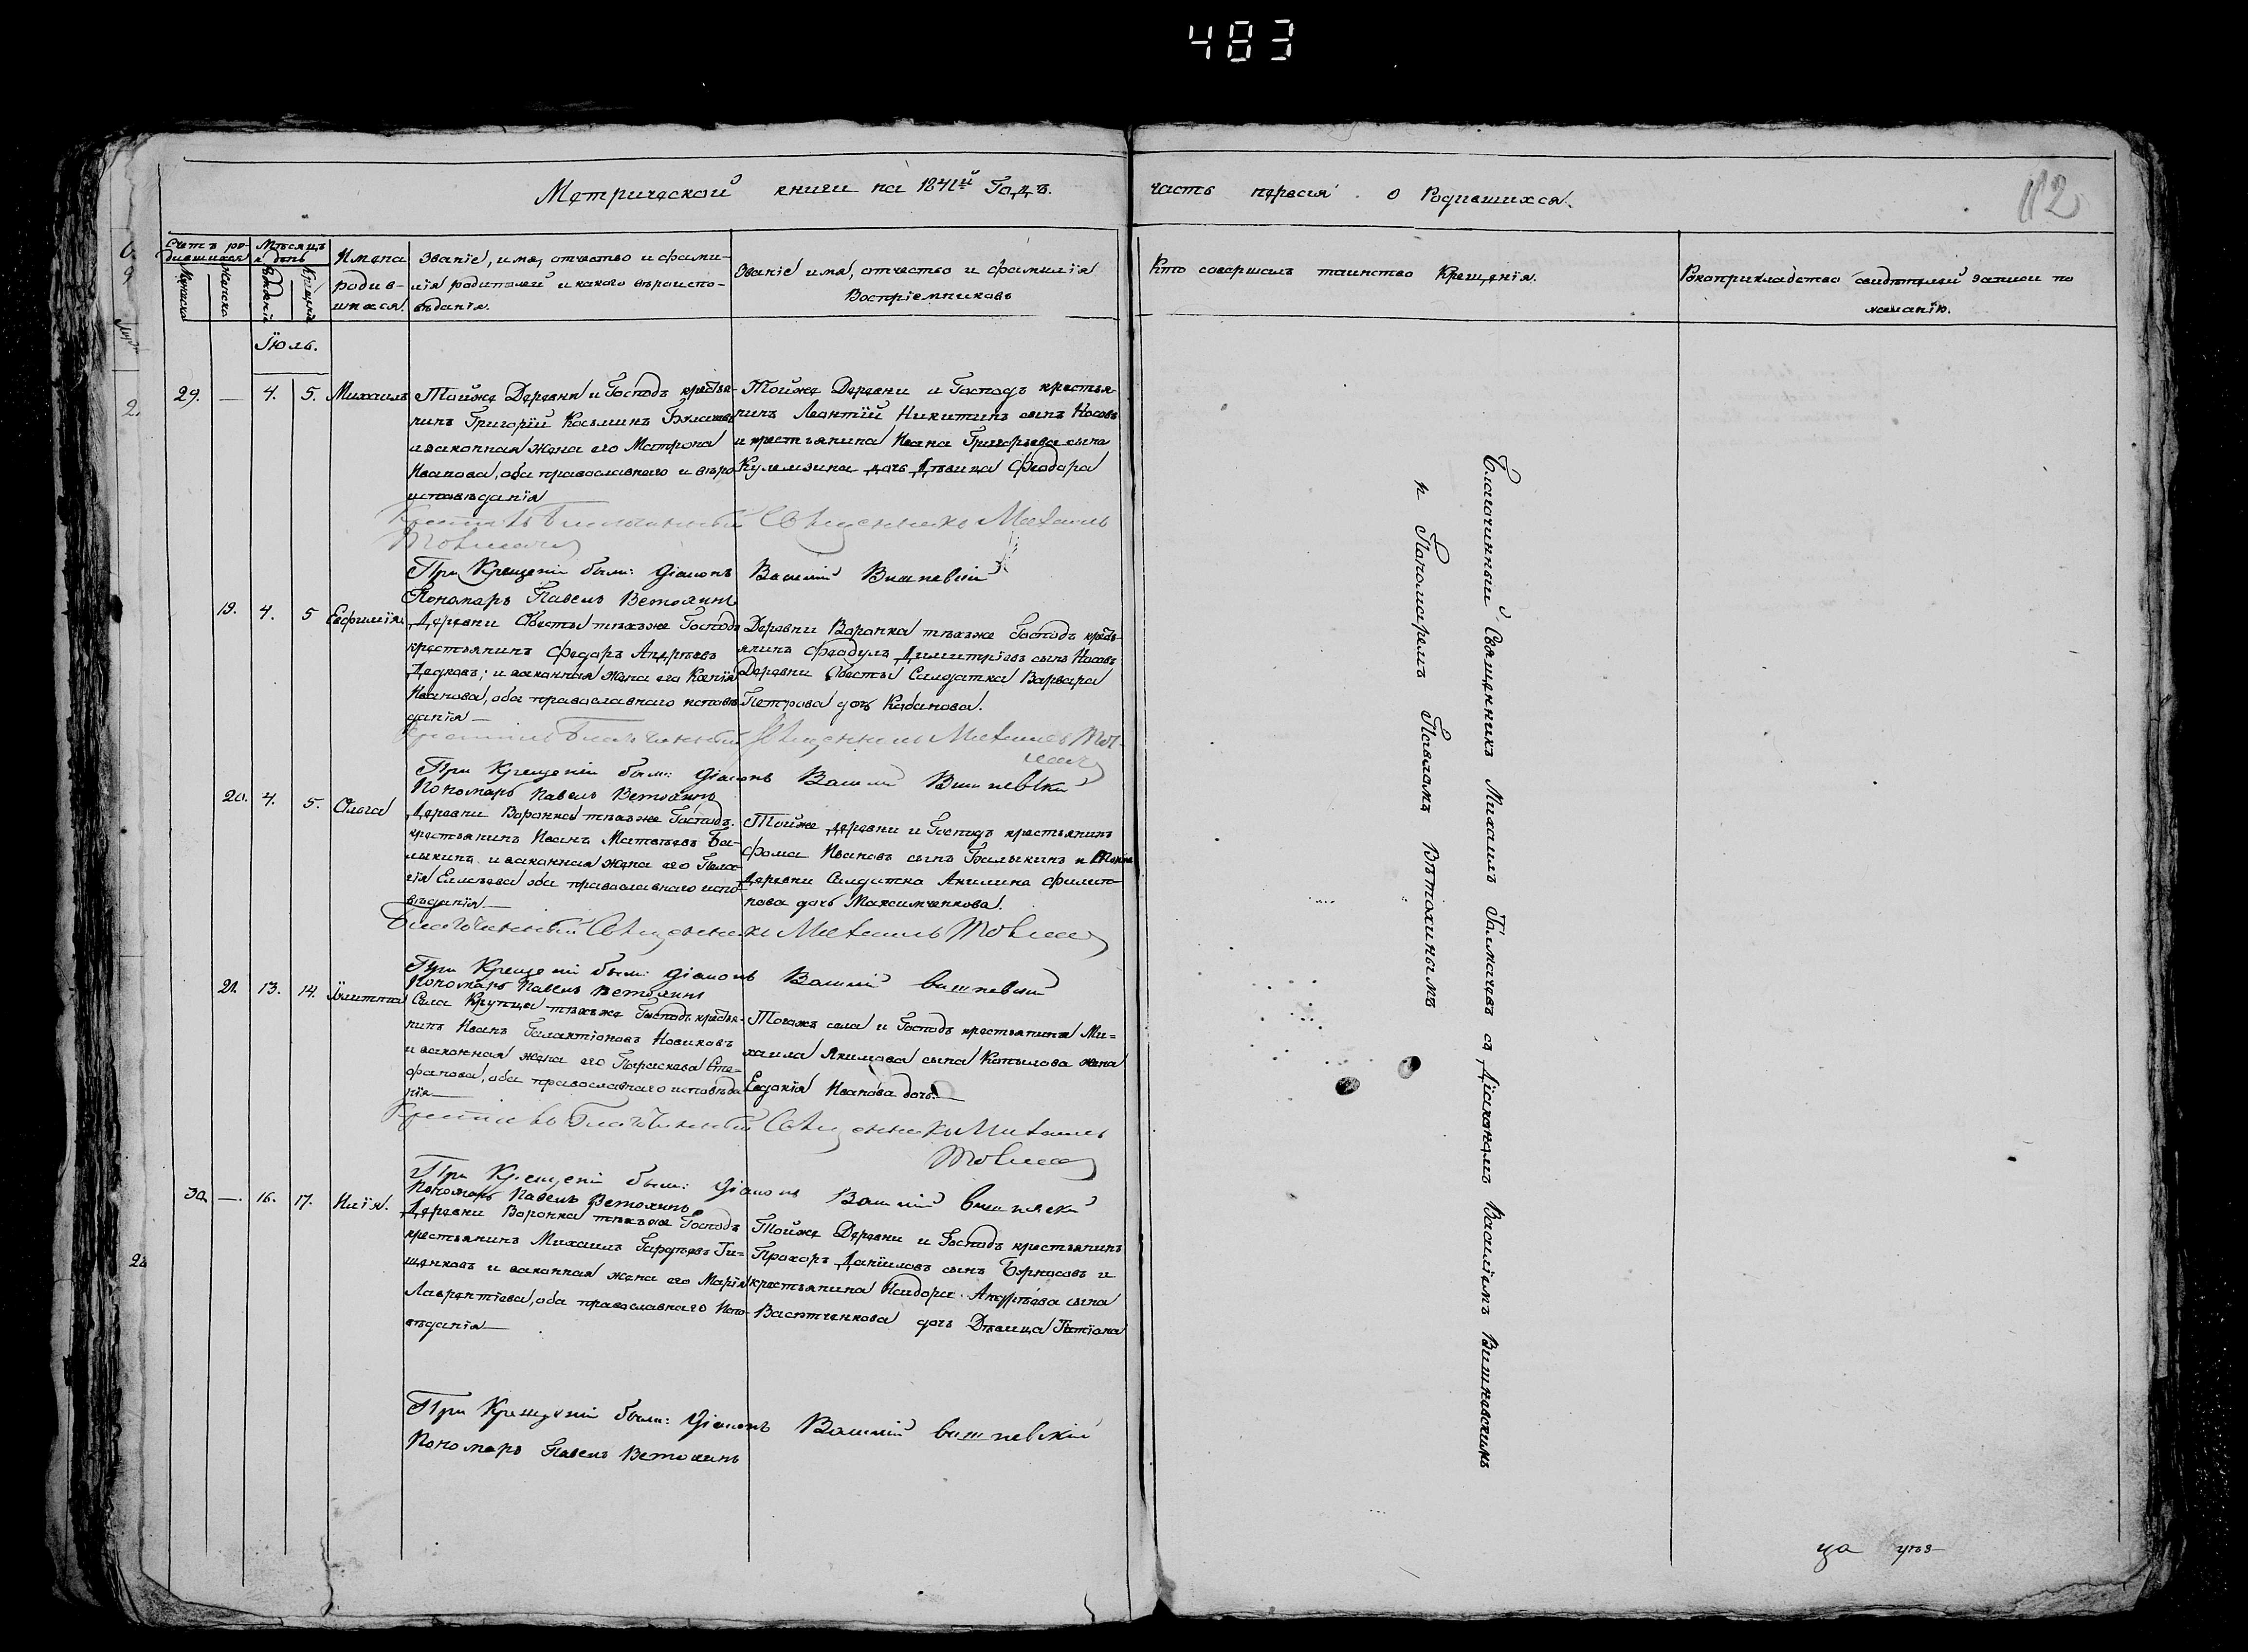 483
Метрической книги на 1841й Годъ.
часть первая о Родившихся.
112
Счетъ ро-
дившихся
Мѣсяцъ
и день
Имена
родив-
шихся.
Званіе, имя, отчество и фами-
лія родителей и какого вѣроиспо-
вѣданія.
Званіе имя, отчество и фамилія
Воспріемниковъ
Кто совершалъ таинство Крещенія.
Рукоприкладство свидѣтелей записи по
желанію.
Мужеска
Женска
Рожденія
Крещенія
Іюль.
29. — 4. 5. Михаилъ
Тойже Деревни и Господъ кресть-
нинъ Григорій Косьминъ
и законная жена его Матрона
Иванова, оба православнаго и вѣро
исповѣданія
Тойже Деревни и Господъ крестья-
нинъ Леонтій Никитинъ сынъ Носовъ
и крестьянина Ивана Григорьева сына
Кулемзина дочь Дѣвица Феодора
Крестилъ Благочинный Священникъ Михаилъ
При Крещеніи были: Діаконъ Василій Вишневскій
Пономарь Павелъ Ветохинъ
19. 4. 5 Евфимія
Деревни Обесты тѣхъже Господъ
крестьянинъ Федоръ Андрѣевъ
Дедковъ; и законная жена его Ксенія
Иванова, оба православнаго исповѣ
данія —
Деревни Воронка тѣхъже Господъ кресть-
янинъ Феодулъ Димитріевъ сынъ Носовъ
Деревни Обесты Салдатка Варвара
Петрова дочь Кабанова.
Крестилъ Благочинный Священникъ Михаилъ
При Крещеніи были: Діаконъ Василій Вишневскій
Пономарь Павелъ Ветохинъ
20. 4. 5. Ольга
Деревни Воронка тѣхъже Господъ.
крестьянинъ Иванъ Матвѣевъ Ба-
лыкинъ и законная жена его Пела-
гія Елисѣева оба православнаго испо-
вѣданія —
Тойже деревни и Господъ крестьянинъ
Фома Ивановъ сынъ Балыкинъ и Тойже
Деревни Салдатка Акилина Филип-
пова дочь Максимченкова.
Благочинный Священникъ Михаилъ
При Крещеніи были: Діаконъ Василій Вишневскій
Пономарь Павелъ Ветохинъ
21. 13. 14.
Села Крупца тѣхъже Господъ кресть-
нинъ Иванъ Галактіоновъ Новиковъ
и законная жена его Параскева Сте-
фанова, оба православнаго исповѣда
нія —
Тогожъ села и Господъ крестьянина Ми-
хаила Якимова сына Копылова жена
Евдокія Иванова дочь. —
Крестилъ Благочинный Священникъ Михаилъ
При Крещеніи были: Діаконъ Василій Вишневскій
Пономарь Павелъ Ветохинъ
30. — 16. 17. Илія.
Деревни Воронка тѣхъже Господъ
крестьянинъ Михаилъ Гордѣевъ Ти-
щенковъ и законная жена его Марія
Лаврентіева, оба православнаго Испо-
вѣданія —
Тойже Деревни и Господъ крестьянинъ
Прохоръ Даніиловъ сынъ Борисовъ и
крестьянина Исидора Андрѣева сына
Васютченкова дочь Дѣвица Татіана
При Крещеніи были: Діаконъ Василій Вишневскій
Пономарь Павелъ Ветохинъ
Благочинный Священникъ Михаилъ съ Діакономъ Василіемъ Вишневскимъ
и Пономаремъ Павломъ Вѣтохинымъ
ца уѣз-